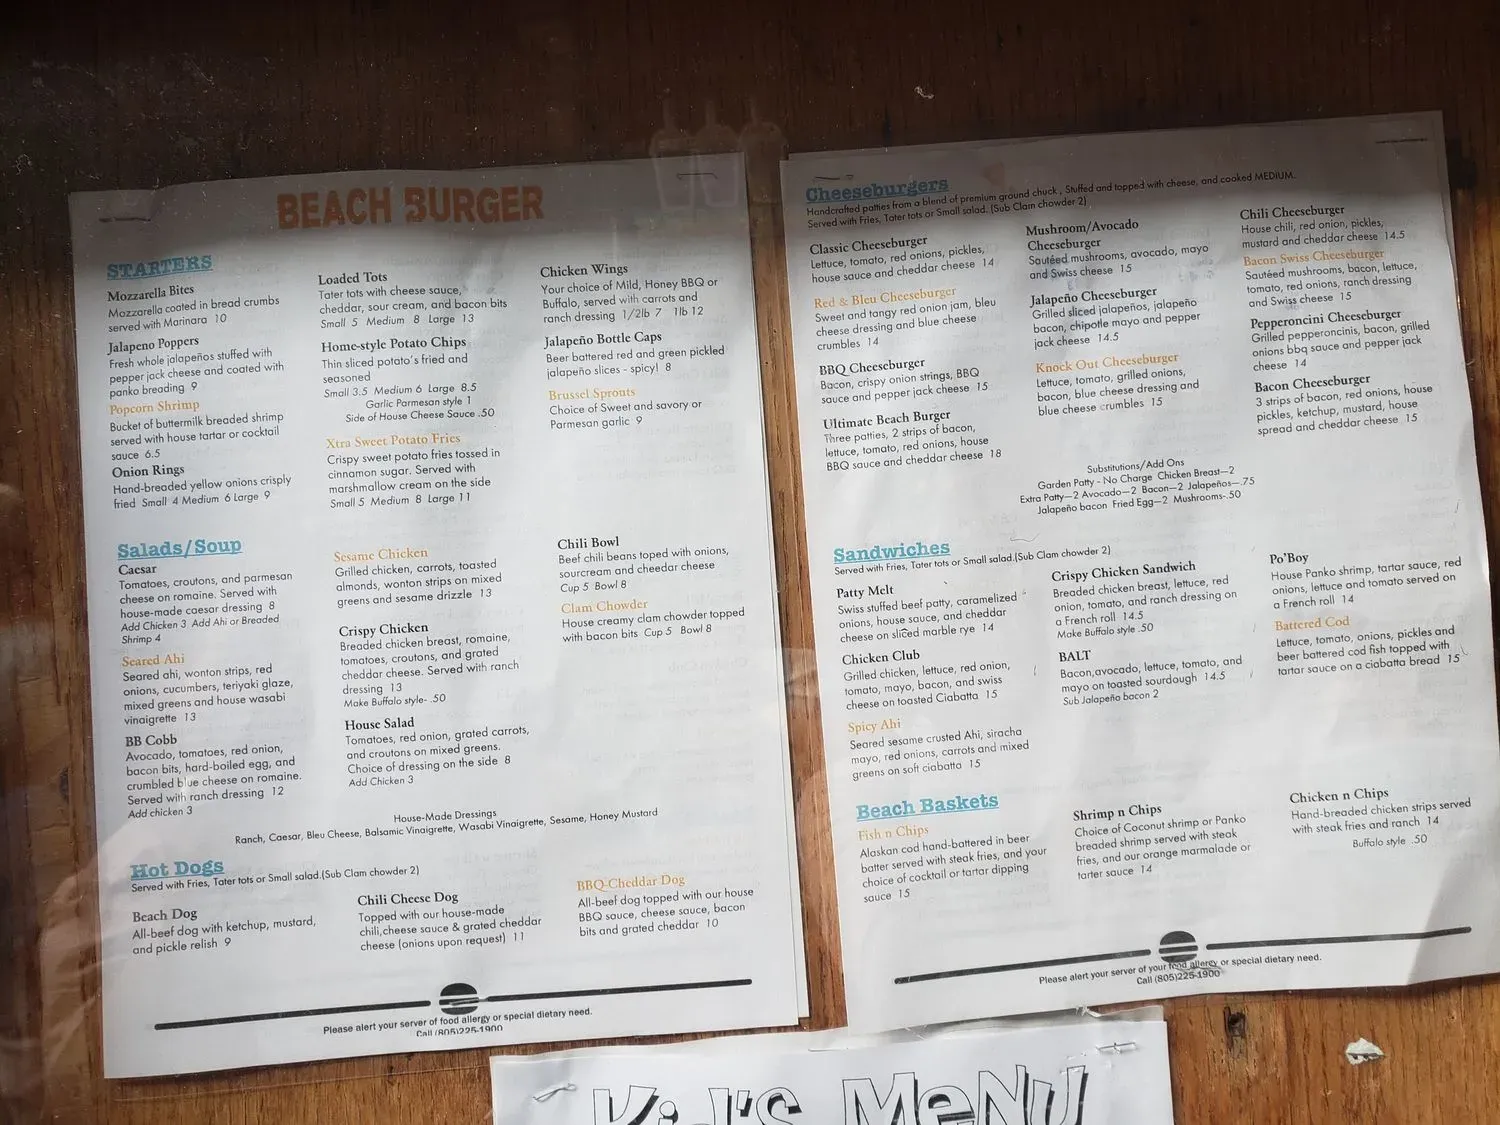 BEACH BURGER
STARTERS
Mozzarella Bites
Mozzarella coated in bread crumbs
served with Marinara 10
Jalapeno Poppers
Fresh whole jalapeños stuffed with
pepper jack cheese and coated with
panko breading 9
Popcorn Shrimp
Bucket of buttermilk breaded shrimp
served with house tartar or cocktail
sauce 6.5
Onion Rings
Hand-breaded yellow onions crisply
fried Small 4 Medium 6 Large 9
Loaded Tots
Tater tots with cheese sauce,
cheddar, sour cream, and bacon bits
Small 5 Medium 8 Large 13
Home-style Potato Chips
Thin sliced potato's fried and
seasoned
Small 3.5 Medium 6 Large 8.5
Garlic Parmesan style 1
Side of House Cheese Sauce .50
Xtra Sweet Potato Fries
Crispy sweet potato fries tossed in
cinnamon sugar. Served with
marshmallow cream on the side
Small 5 Medium 8 Large 11
Chicken Wings
Your choice of Mild, Honey BBQ or
Buffalo, served with carrots and
ranch dressing 1/2lb 7 1lb 12
Jalapeño Bottle Caps
Beer battered red and green pickled
jalapeño slices - spicy! 8
Brussel Sprouts
Choice of Sweet and savory or
Parmesan garlic 9
Salads/Soup
Caesar
Tomatoes, croutons, and parmesan
cheese on romaine. Served with
house-made caesar dressing 8
Add Chicken 3 Add Ahi or Breaded
Shrimp 4
Seared Ahi
Seared ahi, wonton strips, red
onions, cucumbers, teriyaki glaze,
mixed greens and house wasabi
vinaigrette 13
BB Cobb
Avocado, tomatoes, red onion,
bacon bits, hard-boiled egg, and
crumbled blue cheese on romaine.
Served with ranch dressing 12
Add chicken 3
Sesame Chicken
Grilled chicken, carrots, toasted
almonds, wonton strips on mixed
greens and sesame drizzle 13
Crispy Chicken
Breaded chicken breast, romaine,
tomatoes, croutons, and grated
cheddar cheese. Served with ranch
dressing 13
Make Buffalo style- .50
House Salad
Tomatoes, red onion, grated carrots,
and croutons on mixed greens.
Choice of dressing on the side 8
Add Chicken 3
Chili Bowl
Beef chili beans toped with onions,
sourcream and cheedar cheese
Cup 5 Bowl 8
Clam Chowder
House creamy clam chowder topped
with bacon bits Cup 5 Bowl 8
House-Made Dressings
Ranch, Caesar, Bleu Cheese, Balsamic Vinaigrette, Wasabi Vinaigrette, Sesame, Honey Mustard
Hot Dogs
Served with Fries, Tater tots or Small salad.(Sub Clam chowder 2)
Beach Dog
All-beef dog with ketchup, mustard,
and pickle relish 9
Chili Cheese Dog
Topped with our house-made
chili,cheese sauce & grated cheddar
cheese (onions upon request) 11
BBQ-Cheddar Dog
All-beef dog topped with our house
BBQ sauce, cheese sauce, bacon
bits and grated cheddar 10
Please alert your server of food allergy or special dietary need.
Call (805)225-1900
Cheeseburgers
Handcrafted patties from a blend of premium ground chuck , Stuffed and topped with cheese, and cooked MEDIUM.
Served with Fries, Tater tots or Small salad. (Sub Clam chowder 2)
Classic Cheeseburger
Lettuce, tomato, red onions, pickles,
house sauce and cheddar cheese 14
Red & Bleu Cheeseburger
Sweet and tangy red onion jam, bleu
cheese dressing and blue cheese
crumbles 14
BBQ Cheeseburger
Bacon, crispy onion strings, BBQ
sauce and pepper jack cheese 15
Ultimate Beach Burger
Three patties, 2 strips of bacon,
lettuce, tomato, red onions, house
BBQ sauce and cheddar cheese 18
Mushroom/Avocado
Cheeseburger
Sautéed mushrooms, avocado, mayo
and Swiss cheese 15
Jalapeño Cheeseburger
Grilled sliced jalapeños, jalapeño
bacon, chipotle mayo and pepper
jack cheese 14.5
Knock Out Cheeseburger
Lettuce, tomato, grilled onions,
bacon, blue cheese dressing and
blue cheese crumbles 15
Chili Cheeseburger
House chili, red onion, pickles,
mustard and cheddar cheese 14.5
Bacon Swiss Cheeseburger
Sautéed mushrooms, bacon, lettuce,
tomato, red onions, ranch dressing
and Swiss cheese 15
Pepperoncini Cheeseburger
Grilled pepperoncinis, bacon, grilled
onions bbq sauce and pepper jack
cheese 14
Bacon Cheeseburger
3 strips of bacon, red onions, house
pickles, ketchup, mustard, house
spread and cheddar cheese 15
Substitutions/Add Ons
Garden Patty - No Charge Chicken Breast—2
Extra Patty—2 Avocado—2 Bacon—2 Jalapeños—.75
Jalapeño bacon Fried Egg—2 Mushrooms-.50
Sandwiches
Served with Fries, Tater tots or Small salad.(Sub Clam chowder 2)
Patty Melt
Swiss stuffed beef patty, caramelized
onions, house sauce, and cheddar
cheese on sliced marble rye 14
Chicken Club
Grilled chicken, lettuce, red onion,
tomato, mayo, bacon, and swiss
cheese on toasted Ciabatta 15
Spicy Ahi
Seared sesame crusted Ahi, siracha
mayo, red onions, carrots and mixed
greens on soft ciabatta 15
Crispy Chicken Sandwich
Breaded chicken breast, lettuce, red
onion, tomato, and ranch dressing on
a French roll 14.5
Make Buffalo style .50
BALT
Bacon,avocado, lettuce, tomato, and
mayo on toasted sourdough 14.5
Sub Jalapeño bacon 2
Po'Boy
House Panko shrimp, tartar sauce, red
onions, lettuce and tomato served on
a French roll 14
Battered Cod
Lettuce, tomato, onions, pickles and
beer battered cod fish topped with
tartar sauce on a ciabatta bread 15
Beach Baskets
Fish n Chips
Alaskan cod hand-battered in beer
batter served with steak fries, and your
choice of cocktail or tartar dipping
sauce 15
Shrimp n Chips
Choice of Coconut shrimp or Panko
breaded shrimp served with steak
fries, and our orange marmalade or
tarter sauce 14
Chicken n Chips
Hand-breaded chicken strips served
with steak fries and ranch 14
Buffalo style .50
Please alert your server of your food allergy or special dietary need.
Call (805)225-1900
Kid's Menu